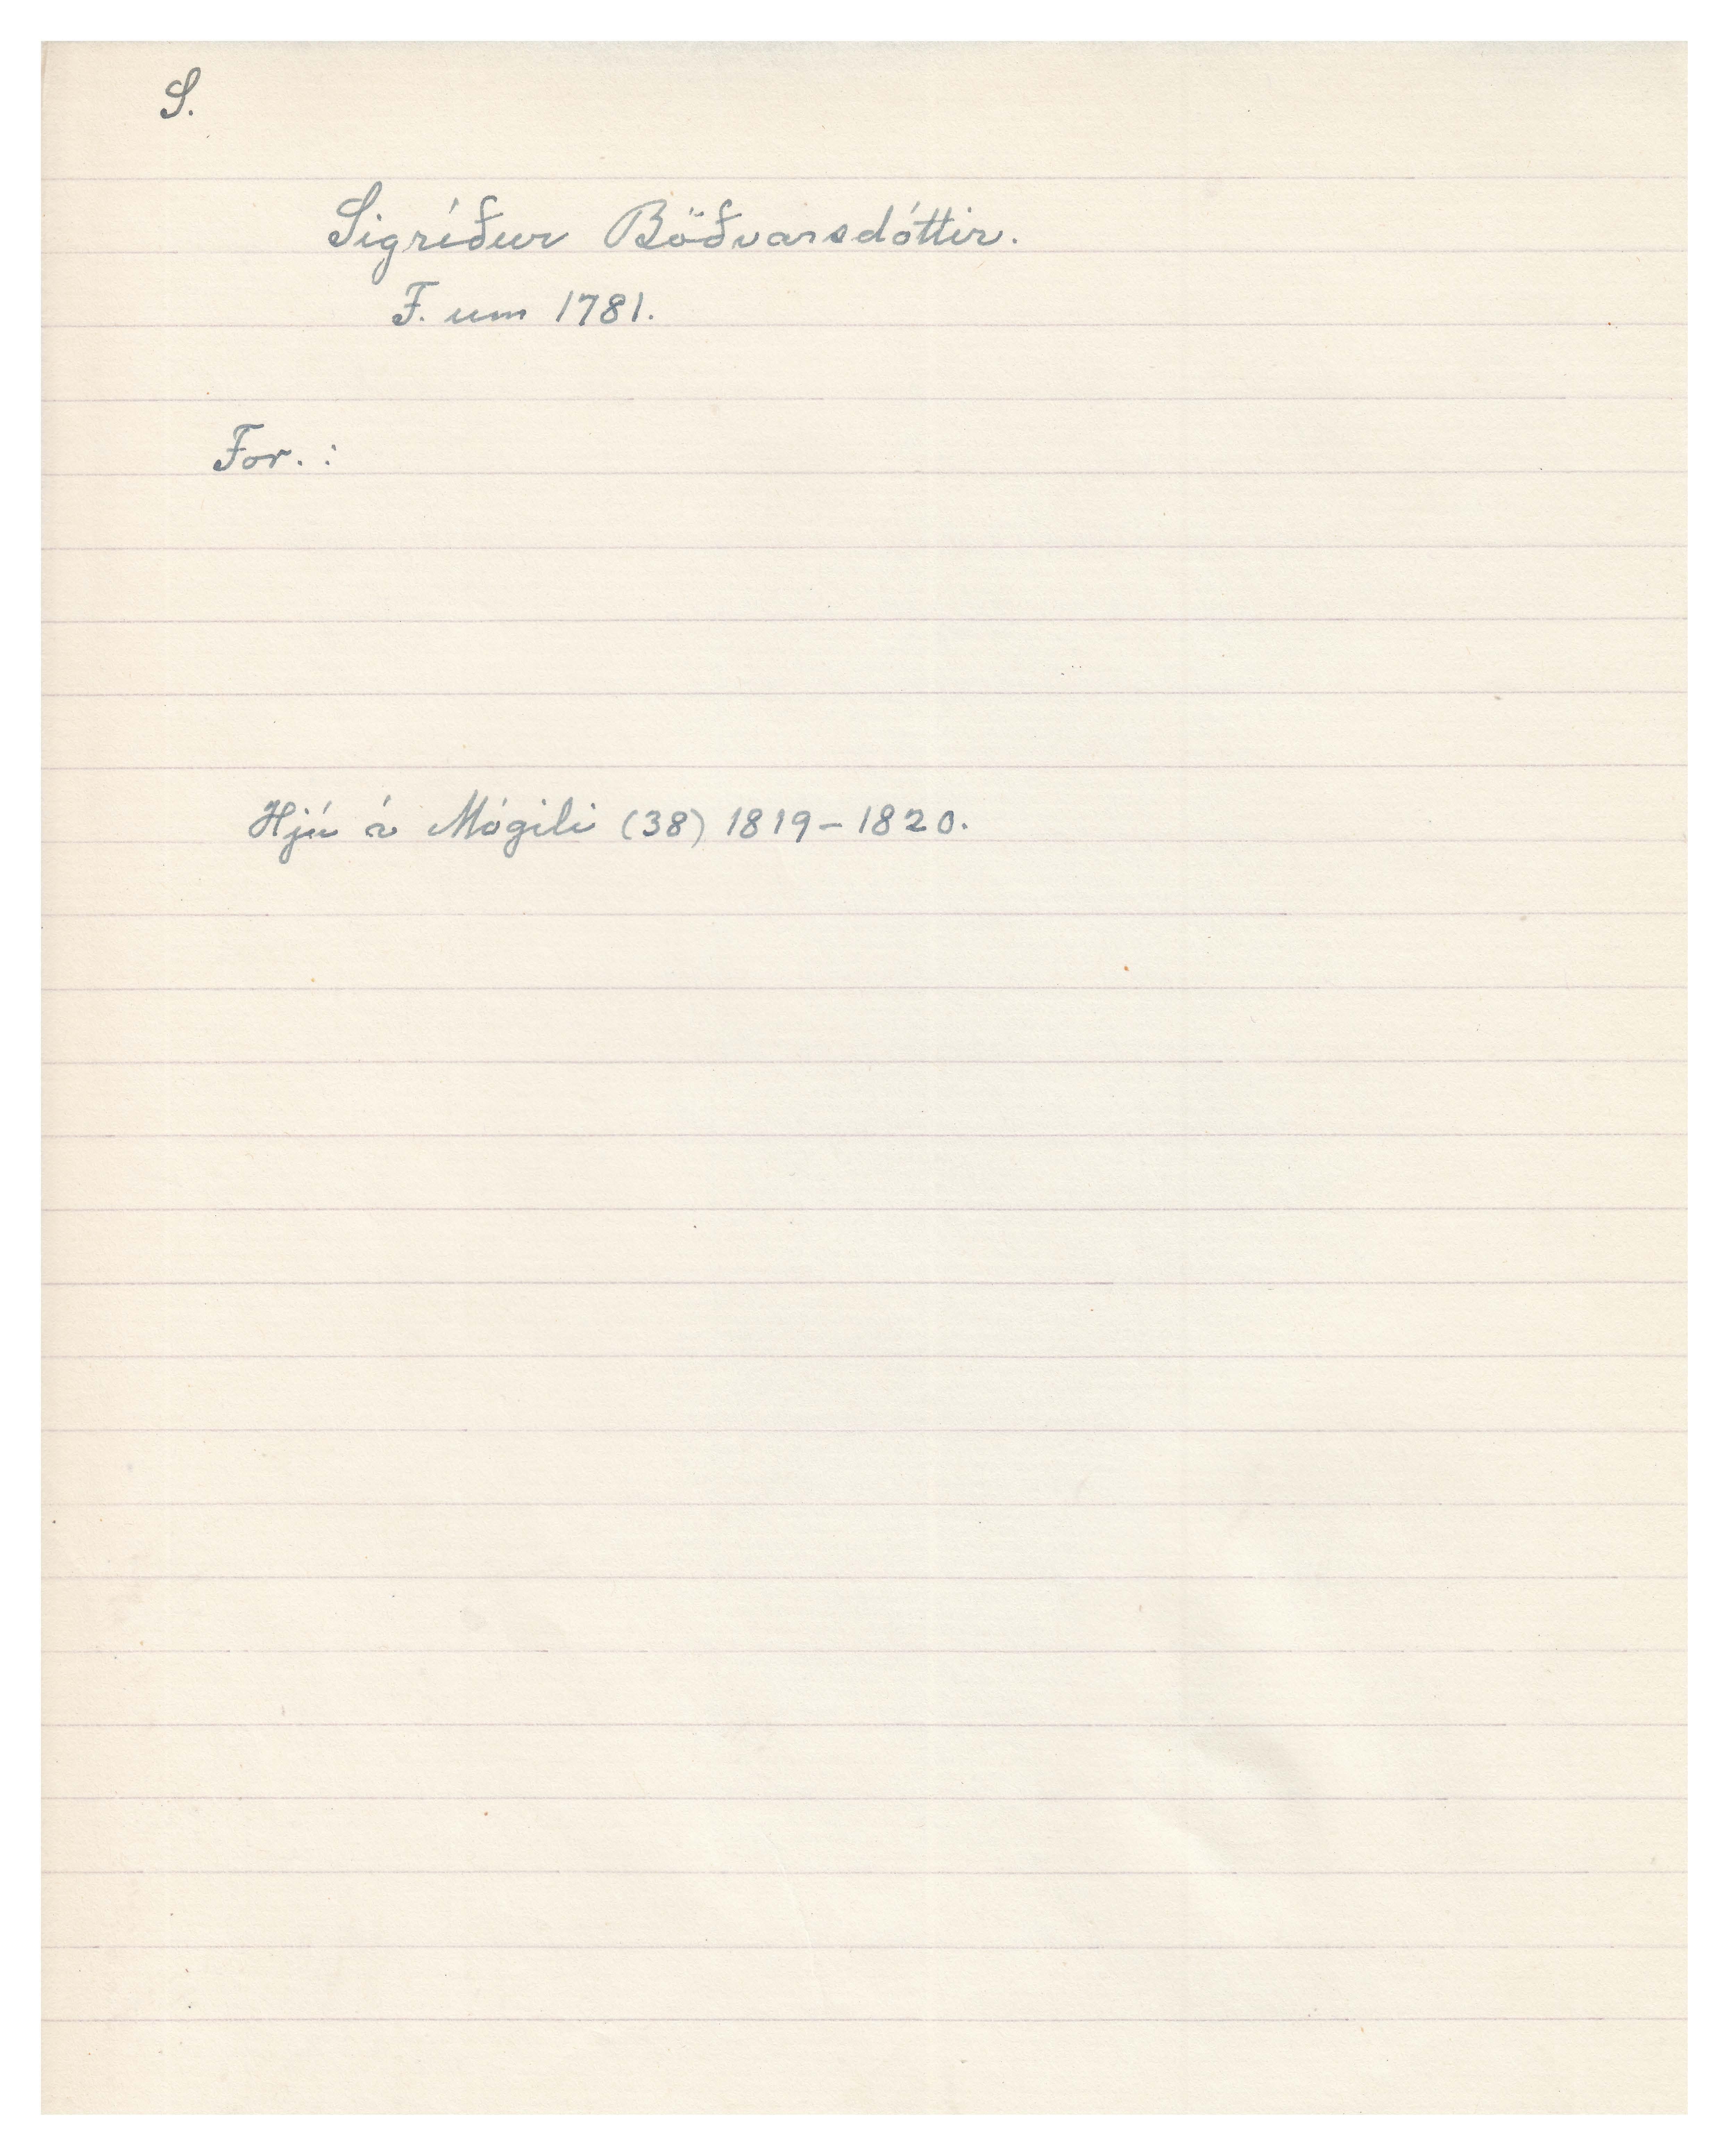 S.
Sigríður Böðvarsdóttir.
F. um 1781.
For. :
Hjú á Mógili (38) 1819-1820.